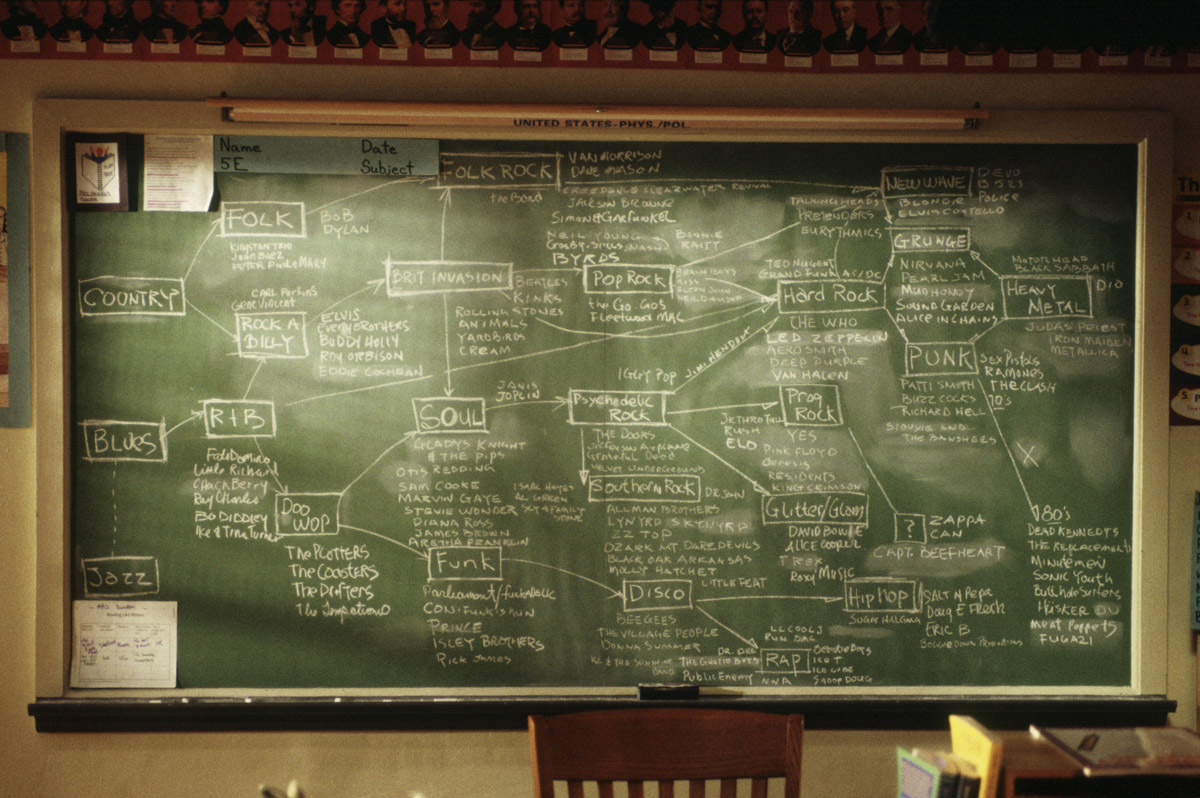 UNITED STATES-PHYS./POL.
Name
Date
5E
Subject
FOLK ROCK
VAN MORRISON
DAVE MASON
The Band
CREEDENCE CLEARWATER REVIVAL
JACKSON BROWNE
Simon & Garfunkel
NEIL YOUNG
Crosby, Stills, Nash
BYRDS
BONNIE
RAITT
NEW WAVE
DEVO
B 52s
POLICE
BLONDIE
ELVIS COSTELLO
TALKING HEADS
PRETENDERS
EURYTHMICS
FOLK
BOB
DYLAN
KINGSTON TRIO
Joan Baez
PETER PAUL & MARY
COUNTRY
CARL PERKINS
Gene Vincent
ROCK A
BILLY
ELVIS
Everly BROTHERS
BUDDY HOLLY
ROY ORBISON
EDDIE COCHRAN
BRIT INVASION
BEATLES
KINKS
ROLLING STONES
ANIMALS
YARDBIRDS
CREAM
POP ROCK
BEACH BOYS
KISS
ELTON JOHN
NEIL DIAMOND
the Go Gos
Fleetwood MAC
TED NUGENT
GRAND FUNK
AC/DC
HARD ROCK
THE WHO
LED ZEPPELIN
AEROSMITH
DEEP PURPLE
VAN HALEN
GRUNGE
NIRVANA
PEARL JAM
MUDHONEY
SOUND GARDEN
ALICE IN CHAINS
MOTORHEAD
BLACK SABBATH
HEAVY
METAL
DIO
JUDAS PRIEST
IRON MAIDEN
METALLICA
PUNK
SEX PISTOLS
RAMONES
THE CLASH
70's
PATTI SMITH
BUZZCOCKS
RICHARD HELL
SIOUXSIE AND
THE BANSHEES
X
80's
DEAD KENNEDYS
THE REPLACEMENTS
MINUTEMEN
SONIC YOUTH
Butthole Surfers
HUSKER DU
Meat Puppets
FUGAZI
BLUES
R+B
Fats Domino
Little Richard
Chuck Berry
Ray Charles
BO DIDDLEY
Ike & Tina Turner
JAZZ
DOO
WOP
The PLOTTERS
The COASTERS
The Drifters
The Temptations
SOUL
JANIS
JOPLIN
GLADYS KNIGHT
& THE PIPS
OTIS REDDING
SAM COOKE
MARVIN GAYE
STEVIE WONDER
DIANA ROSS
JAMES BROWN
ARETHA FRANKLIN
ISAAC HAYES
AL GREEN
SLY & FAMILY
STONE
FUNK
Parliament/funkadelic
CON-FUNK-SHUN
PRINCE
ISLEY BROTHERS
Rick James
IGGY POP
JIMI HENDRIX
Psychedelic
ROCK
THE DOORS
Jefferson Airplane
Grateful Dead
VELVET UNDERGROUND
Southern ROCK
DR. JOHN
ALLMAN BROTHERS
LYNYRD SKYNYRD
ZZ TOP
OZARK MT. DAREDEVILS
BLACK OAK ARKANSAS
MOLLY HATCHET
LITTLE FEAT
Prog
ROCK
JETHRO TULL
RUSH
ELO
YES
PINK FLOYD
Genesis
RESIDENTS
KING CRIMSON
Glitter/Glam
DAVID BOWIE
ALICE COOPER
T REX
Roxy MUSIC
?
ZAPPA
CAN
CAPT. BEEFHEART
DISCO
BEE GEES
THE VILLAGE PEOPLE
DONNA SUMMER
KC & THE SUNSHINE
BAND
HIP HOP
SUGAR HILL GANG
SALT N PEPA
Doug E FRESH
ERIC B
BOOGIE DOWN PRODUCTIONS
RAP
LL COOL J
RUN DMC
DR. DRE
THE GHETTO BOYS
PUBLIC ENEMY
NWA
BEASTIE BOYS
ICE T
ICE CUBE
SNOOP DOGG